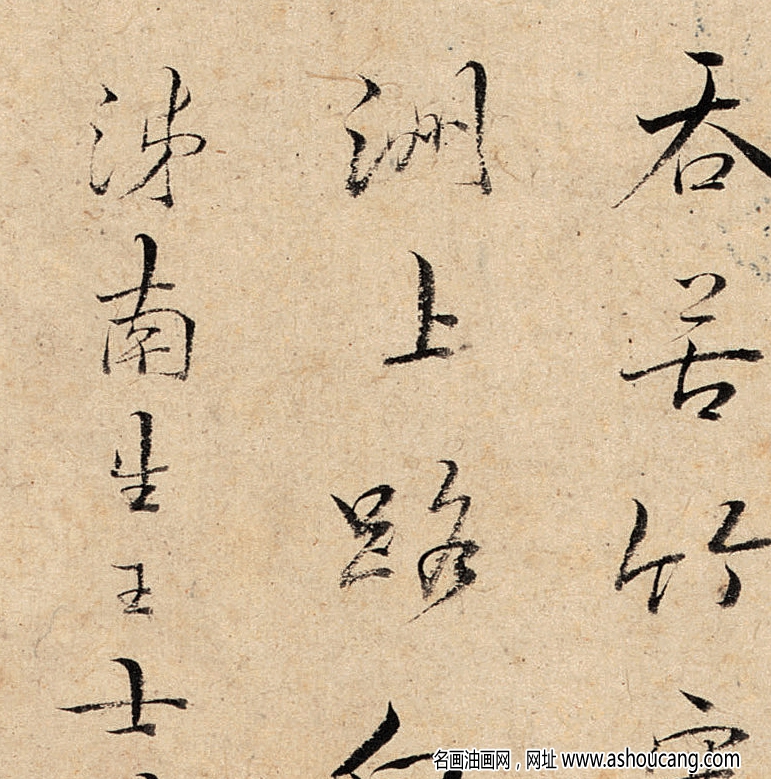 吞苦竹
洲上路
涕南生王士
名画油画网，网址 www.ashoucang.com